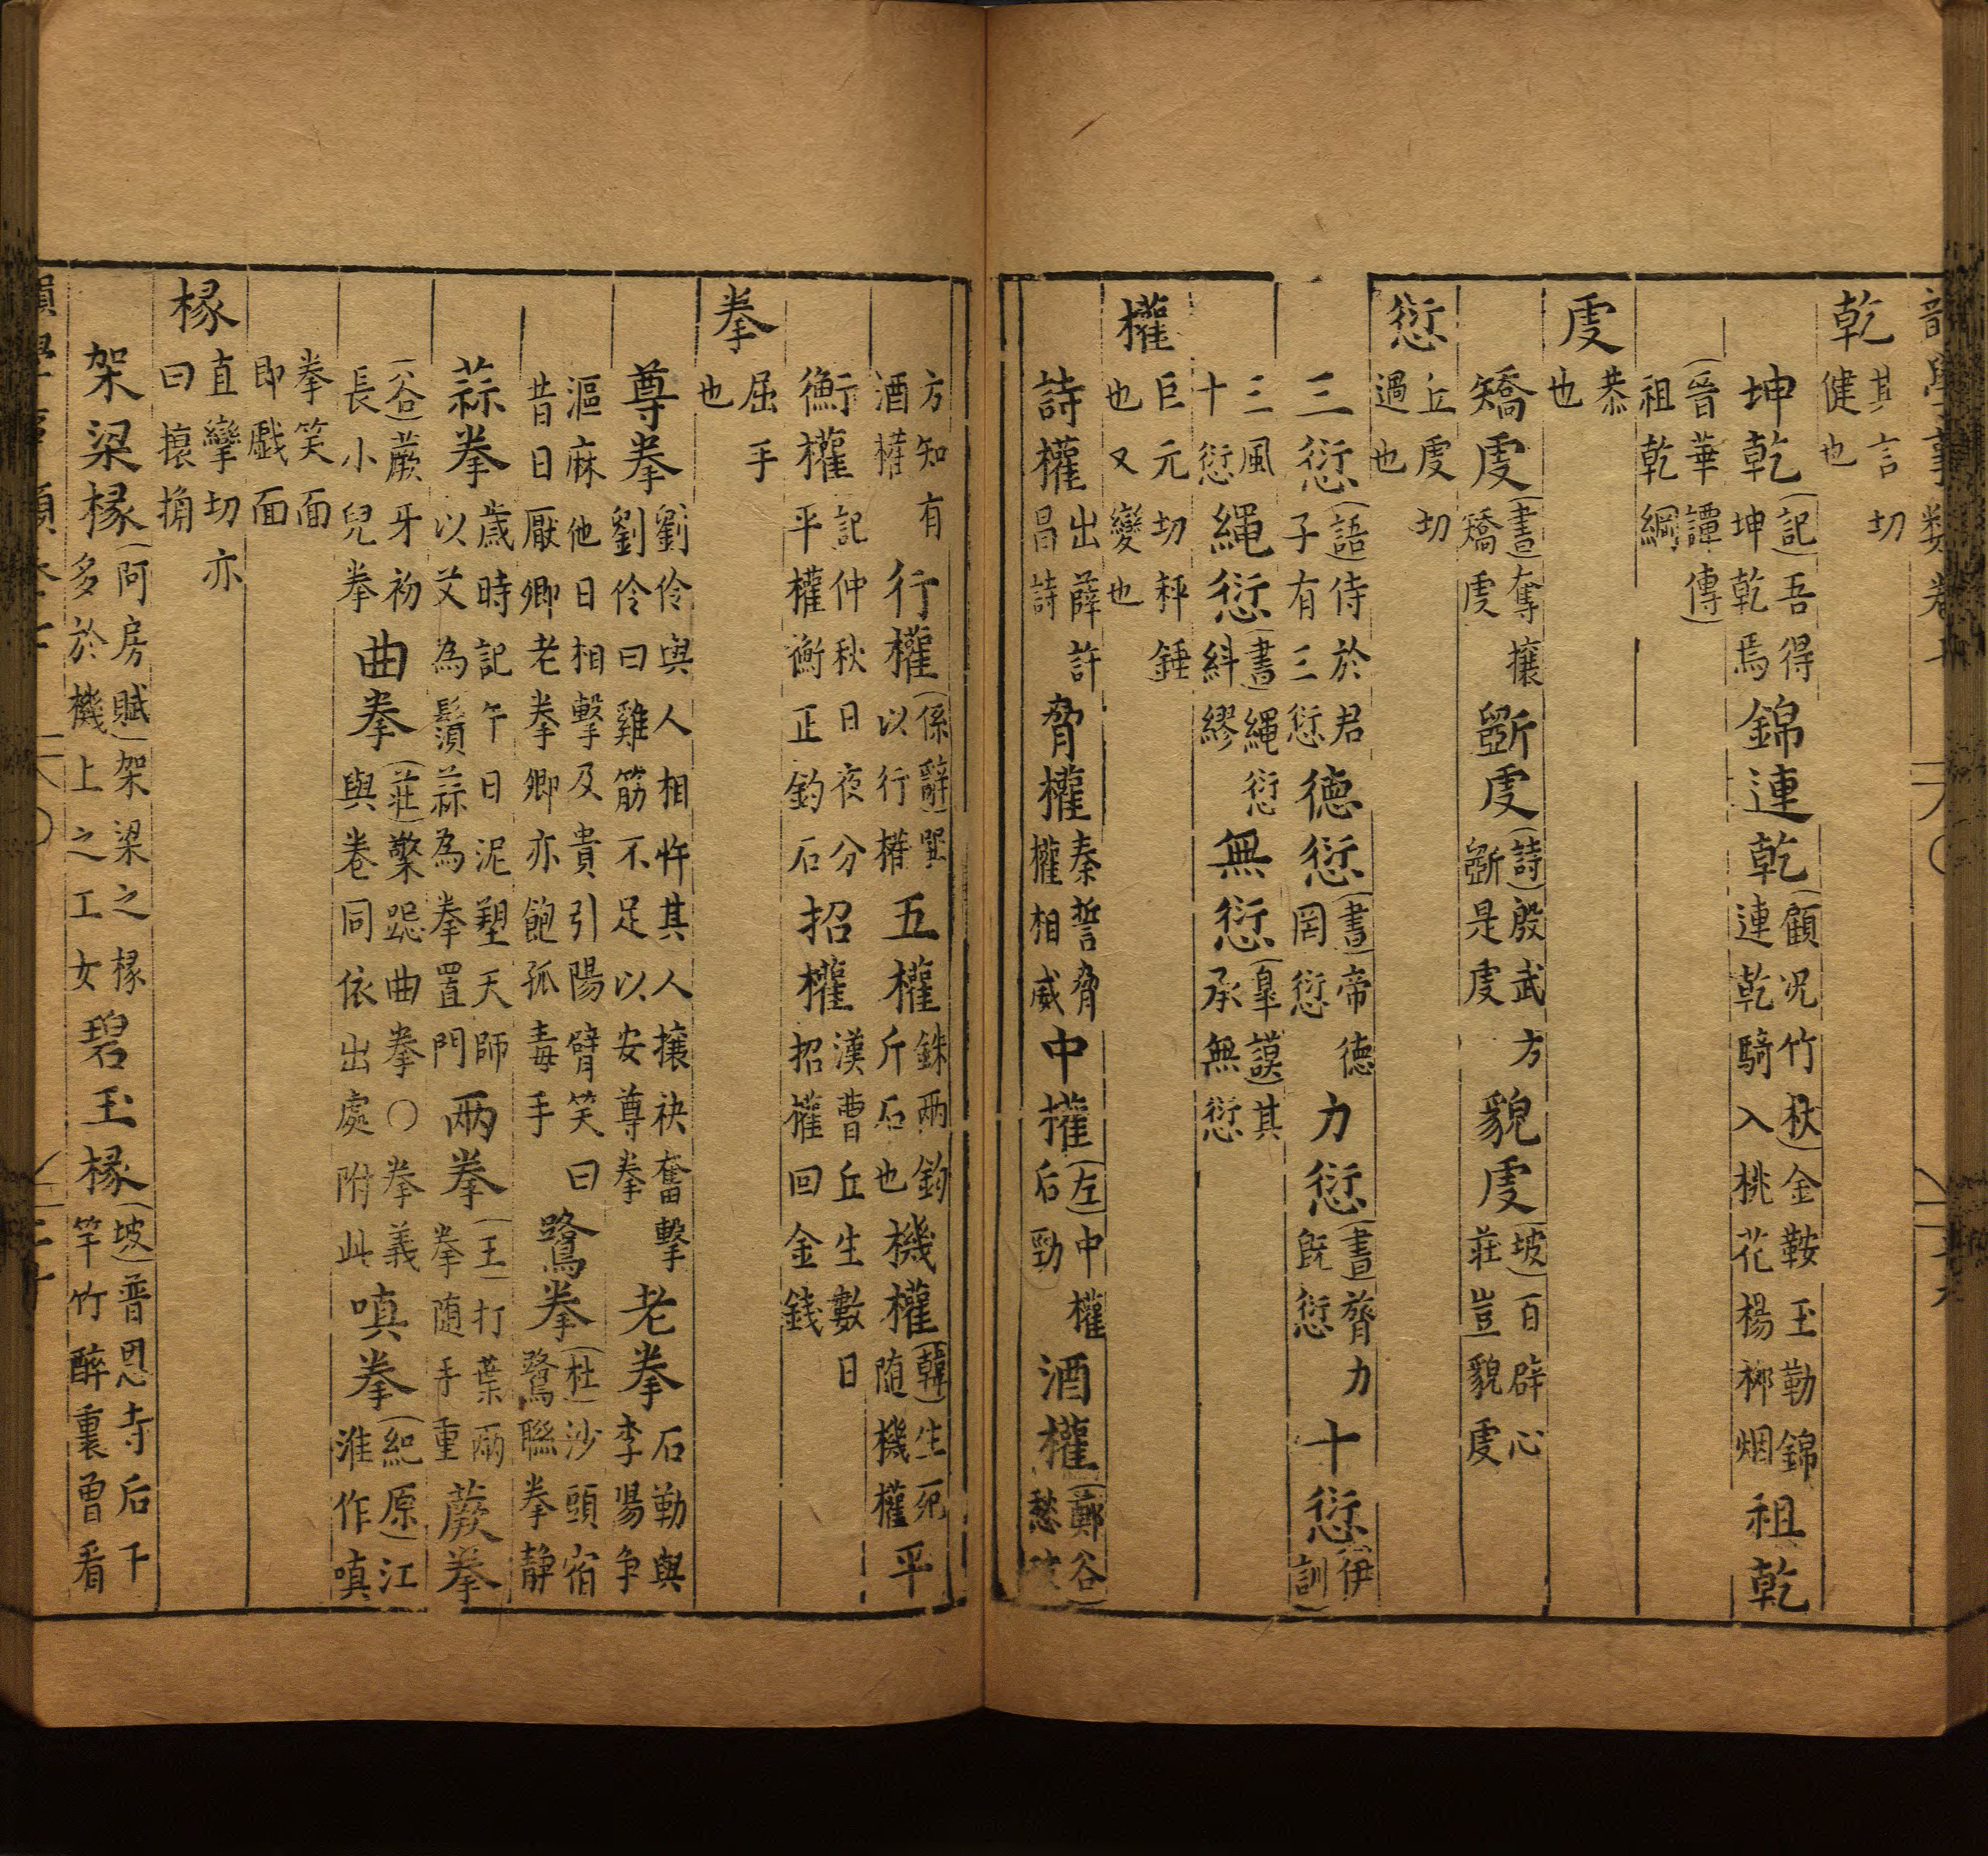 乾其言切健也
坤乾(記)吾得坤乾焉錦連乾(顧况竹枝)金鞍玉勒錦連乾騎入桃花楊栁烟祖乾
(晉華譚傳)祖乾綱
䖍恭也
矯䖍(書)奪攘矯䖍斵䖍(詩)殷武方斵是䖍貌䖍(坡)百辟心莊豈貌䖍
愆丘䖍切過也
三愆(語)侍於君子有三愆德愆(書)帝德罔愆力愆(書)旅力既愆十愆(伊訓)
三風十愆繩愆(書)繩愆糾繆無愆(臯謨)其承無愆
權巨元切秤錘也又變也
詩權出薛許昌詩脅權秦誓脅權相威中權(左)中權后勁酒權(鄭谷)愁破
方知有酒權行權(係辭)巽以行權五權銖兩鈞斤石也機權(韓)生死随機權平
衡權記仲秋日夜分平權衡正鈞石招權漢曹丘生數日招權回金錢
拳屈手也
尊拳劉伶與人相忤其人攘袂奮擊劉伶曰雞筋不足以安尊拳老拳石勒與李陽争
漚麻他日相擊及貴引陽臂笑曰昔日厭卿老拳卿亦飽孤毒手鷺拳(杜)沙頭宿鷺聮拳静
蒜拳歳時記午日泥塑天師以艾為鬚蒜為拳置門两拳(王)打葉兩拳随手重蕨拳
(谷)蕨牙初長小兒拳曲拳(莊)擎跽曲拳〇拳義與卷同依出處附此嗔拳(紀原)江淮作嗔
拳笑面即戱面
椽直攣切亦曰榱桷
架梁椽(阿房賦)架梁之椽多於機上之工女碧玉椽(坡)普恩寺后千竿竹醉裏曽看